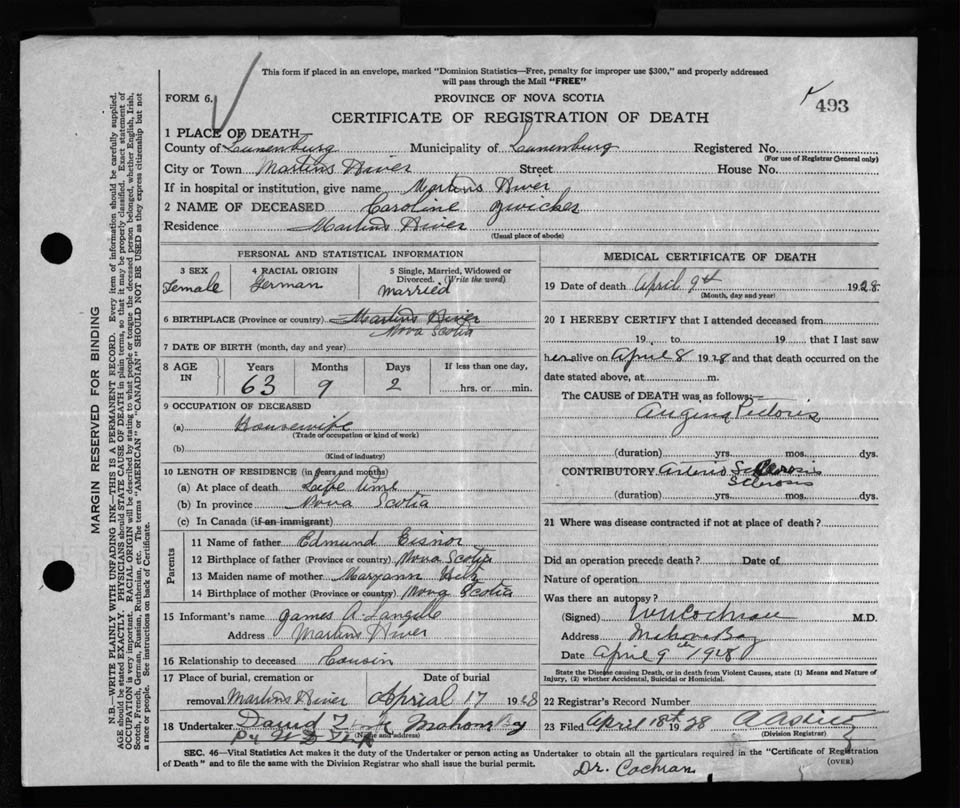 This form if placed in an envelope, marked "Dominion Statistics—Free, penalty for improper use $300," and properly addressed
will pass through the Mail "FREE"
FORM 6.
PROVINCE OF NOVA SCOTIA
493
CERTIFICATE OF REGISTRATION OF DEATH
1 PLACE OF DEATH
County of Lunenburg Municipality of Lunenburg Registered No.
(For use of Registrar General only)
City or Town Martins River Street House No.
If in hospital or institution, give name Martins River
2 NAME OF DECEASED Caroline Zwicker
Residence Martins River
(Usual place of abode)
PERSONAL AND STATISTICAL INFORMATION
3 SEX 4 RACIAL ORIGIN 5 Single, Married, Widowed or
Divorced. (Write the word)
Female German Married
6 BIRTHPLACE (Province or country) Martins River
Nova Scotia
7 DATE OF BIRTH (month, day and year)
8 AGE Years Months Days If less than one day,
IN 63 9 2 hrs. or min.
9 OCCUPATION OF DECEASED
(a) Housewife
(Trade or occupation or kind of work)
(b)
(Kind of industry)
10 LENGTH OF RESIDENCE (in years and months)
(a) At place of death Life time
(b) In province Nova Scotia
(c) In Canada (if an immigrant)
Parents
11 Name of father Edmund Eisnor
12 Birthplace of father (Province or country) Nova Scotia
13 Maiden name of mother Maryann
14 Birthplace of mother (Province or country) Nova Scotia
15 Informant's name James A Langille
Address Martins River
16 Relationship to deceased Cousin
17 Place of burial, cremation or Date of burial
removal Martins River Aprial 17 1928
18 Undertaker David Mahone Bay
(Name and address)
MEDICAL CERTIFICATE OF DEATH
19 Date of death April 9th 1928
(Month, day and year)
20 I HEREBY CERTIFY that I attended deceased from
19 , to 19 that I last saw
her alive on April 8 1928 and that death occurred on the
date stated above, at m.
The CAUSE of DEATH was as follows:
Angina Pectoris
(duration) yrs. mos. dys.
CONTRIBUTORY Arterio Sclerosis
Sclerosis
(duration) yrs. mos. dys.
21 Where was disease contracted if not at place of death?
Did an operation precede death? Date of
Nature of operation
Was there an autopsy?
(Signed) Cochran M.D.
Address Mahone Bay
Date April 9th 1928
State the Disease causing Death, or in death from Violent Causes, state (1) Means and Nature of
Injury, (2) whether Accidental, Suicidal or Homicidal.
22 Registrar's Record Number
23 Filed April 18th 1928
(Division Registrar)
SEC. 46—Vital Statistics Act makes it the duty of the Undertaker or person acting as Undertaker to obtain all the particulars required in the "Certificate of Registration
of Death" and to file the same with the Division Registrar who shall issue the burial permit.
(OVER)
Dr. Cochran
MARGIN RESERVED FOR BINDING
N.B.—WRITE PLAINLY WITH UNFADING INK—THIS IS A PERMANENT RECORD. Every item of information should be carefully supplied.
AGE should be stated EXACTLY. PHYSICIANS should STATE CAUSE OF DEATH in plain terms, so that it may be properly classified. Exact statement of
OCCUPATION is very important. RACIAL ORIGIN will be described by stating to what people or tongue the deceased person belonged, whether English, Irish,
Scotch, French, German, Russian, Ruthenian, etc. The terms "AMERICAN" or "CANADIAN" SHOULD NOT BE USED as they express citizenship but not
a race or people. See instructions on back of Certificate.